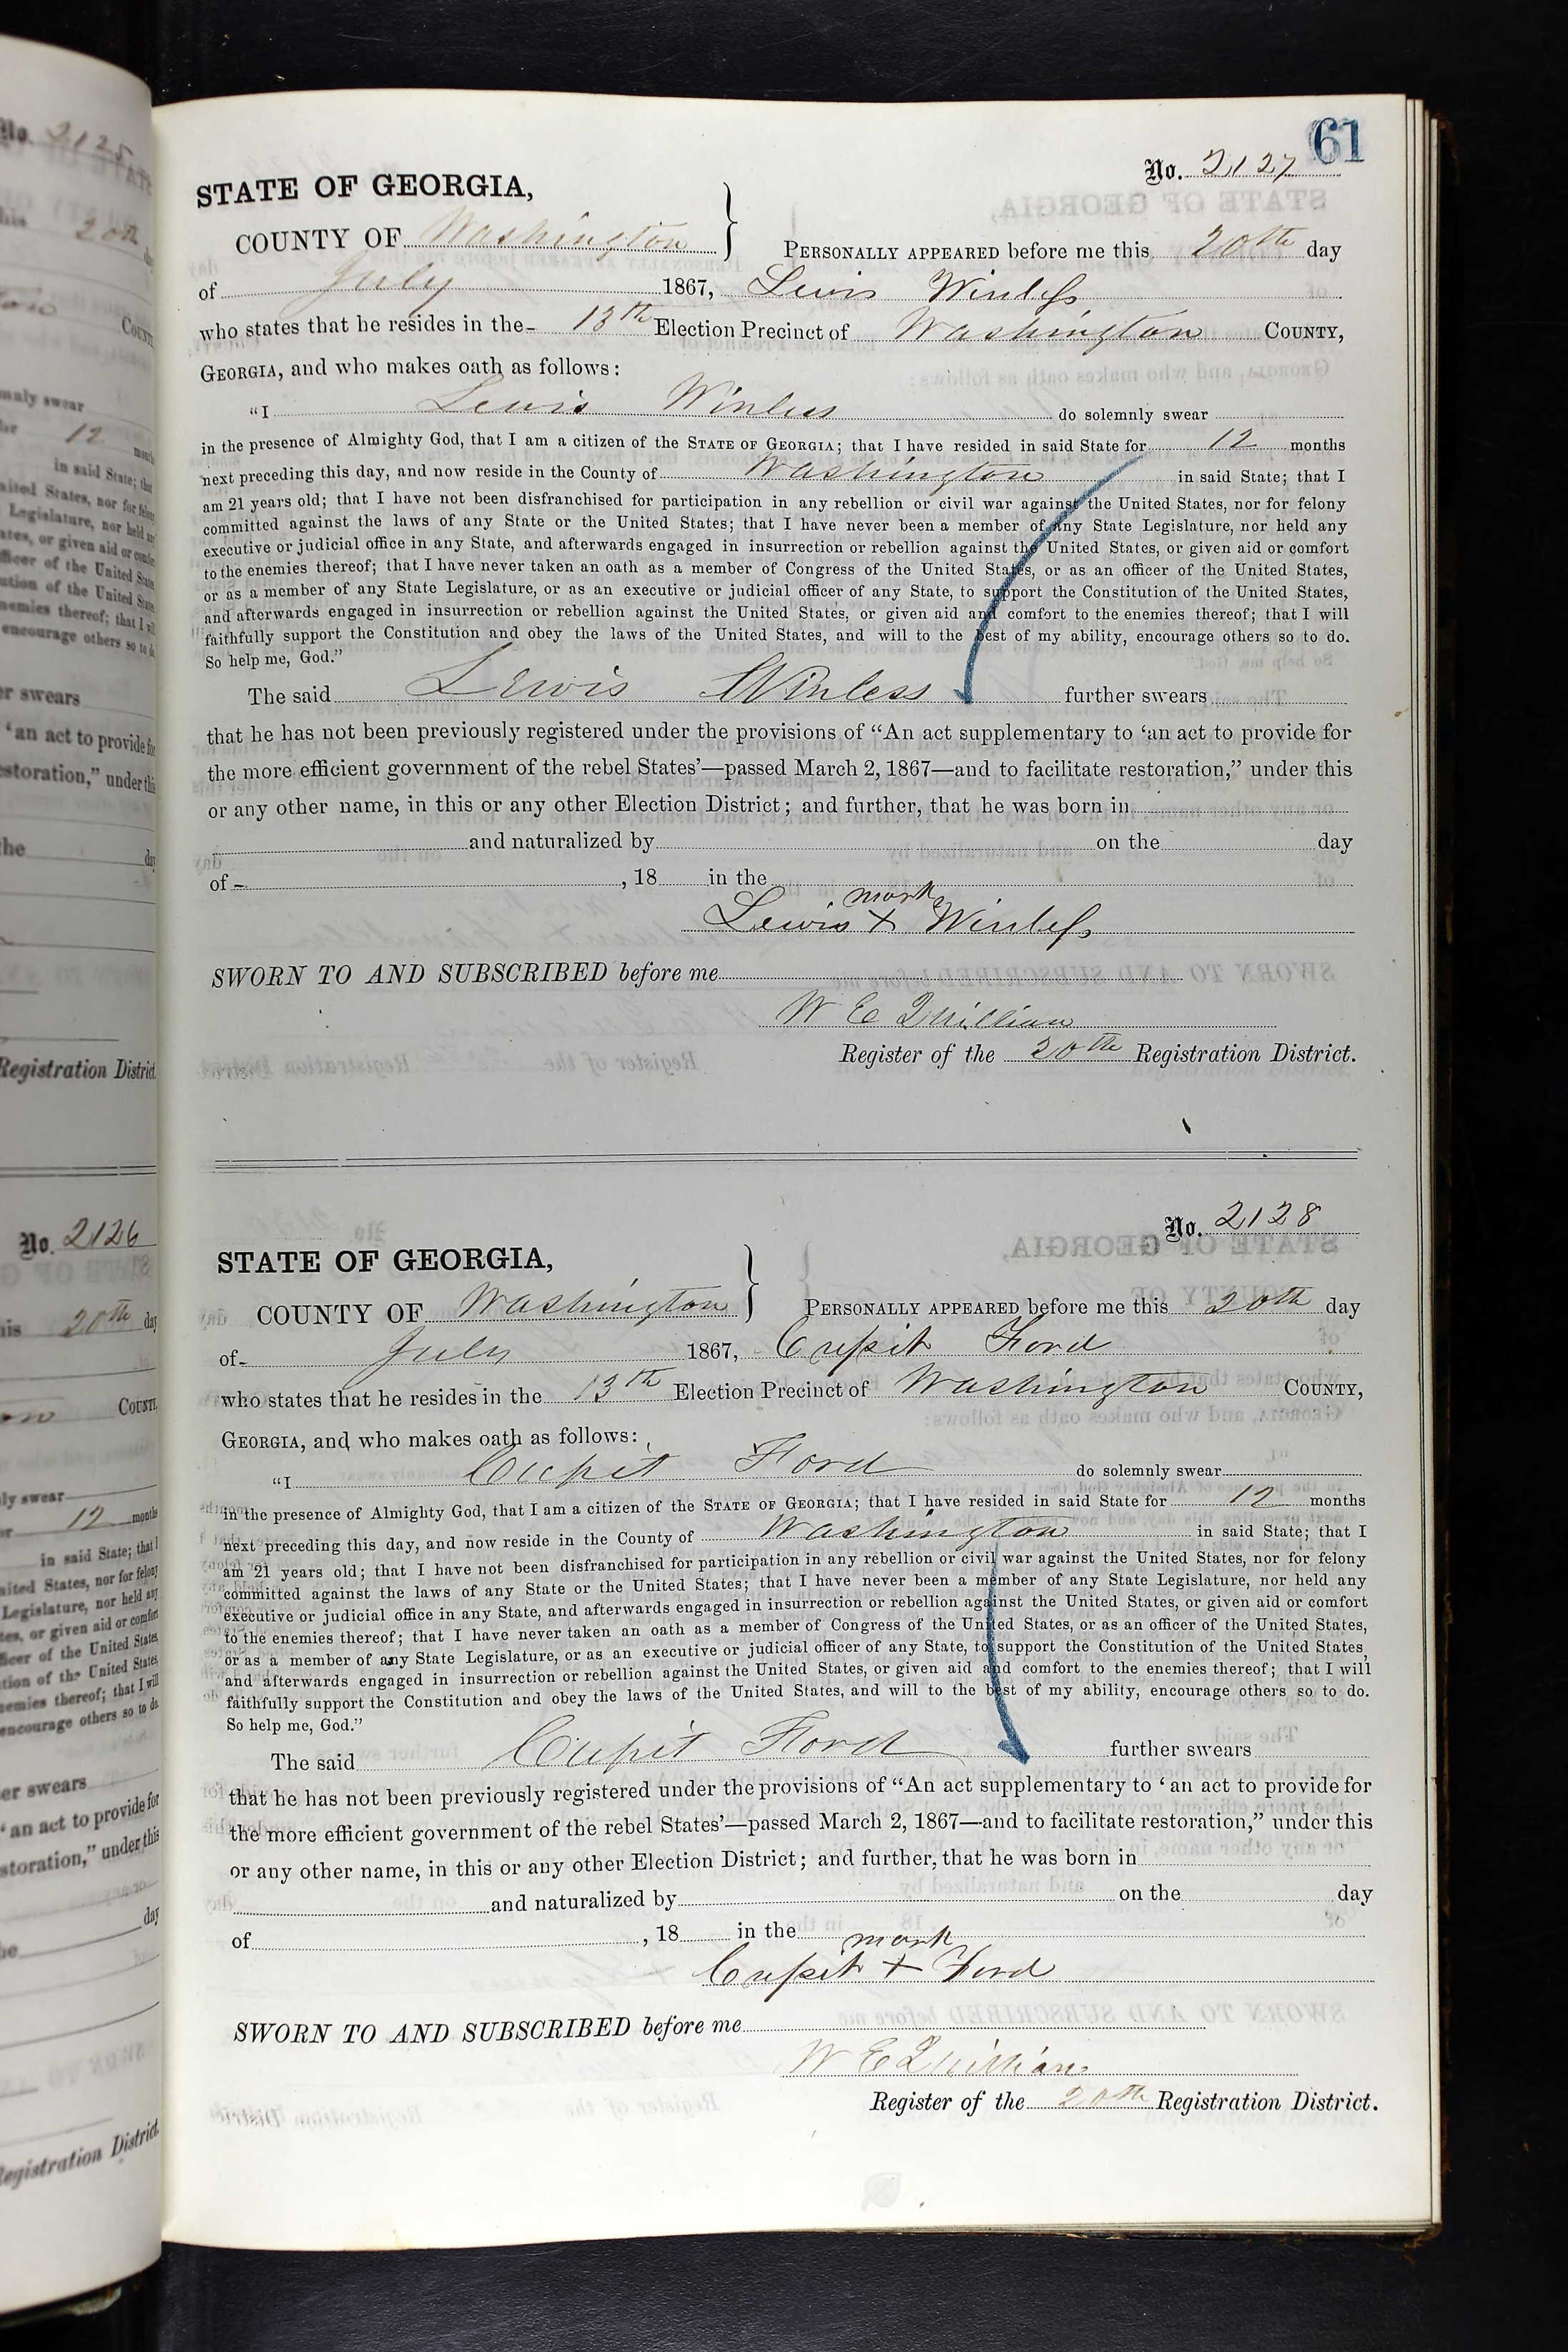 61
No. 2127
STATE OF GEORGIA,
COUNTY OF Washington } PERSONALLY APPEARED before me this 20th day
of July 1867, Lewis Winless
who states that he resides in the 13th Election Precinct of Washington COUNTY,
GEORGIA, and who makes oath as follows:
"I Lewis Winless do solemnly swear
in the presence of Almighty God, that I am a citizen of the STATE OF GEORGIA; that I have resided in said State for 12 months
next preceding this day, and now reside in the County of Washington in said State; that I
am 21 years old; that I have not been disfranchised for participation in any rebellion or civil war against the United States, nor for felony
committed against the laws of any State or the United States; that I have never been a member of any State Legislature, nor held any
executive or judicial office in any State, and afterwards engaged in insurrection or rebellion against the United States, or given aid or comfort
to the enemies thereof; that I have never taken an oath as a member of Congress of the United States, or as an officer of the United States,
or as a member of any State Legislature, or as an executive or judicial officer of any State, to support the Constitution of the United States,
and afterwards engaged in insurrection or rebellion against the United States, or given aid and comfort to the enemies thereof; that I will
faithfully support the Constitution and obey the laws of the United States, and will to the best of my ability, encourage others so to do.
So help me, God."
The said Lewis Winless further swears
that he has not been previously registered under the provisions of "An act supplementary to 'an act to provide for
the more efficient government of the rebel States'—passed March 2, 1867—and to facilitate restoration," under this
or any other name, in this or any other Election District; and further, that he was born in
and naturalized by on the day
of , 18 in the
mark
Lewis + Winless
SWORN TO AND SUBSCRIBED before me
W E Quillian
Register of the 20th Registration District.
No. 2128
STATE OF GEORGIA,
COUNTY OF Washington } PERSONALLY APPEARED before me this 20th day
of July 1867, Cupit Ford
who states that he resides in the 13th Election Precinct of Washington COUNTY,
GEORGIA, and who makes oath as follows:
"I Cupit Ford do solemnly swear
in the presence of Almighty God, that I am a citizen of the STATE OF GEORGIA; that I have resided in said State for 12 months
next preceding this day, and now reside in the County of Washington in said State; that I
am 21 years old; that I have not been disfranchised for participation in any rebellion or civil war against the United States, nor for felony
committed against the laws of any State or the United States; that I have never been a member of any State Legislature, nor held any
executive or judicial office in any State, and afterwards engaged in insurrection or rebellion against the United States, or given aid or comfort
to the enemies thereof; that I have never taken an oath as a member of Congress of the United States, or as an officer of the United States,
or as a member of any State Legislature, or as an executive or judicial officer of any State, to support the Constitution of the United States,
and afterwards engaged in insurrection or rebellion against the United States, or given aid and comfort to the enemies thereof; that I will
faithfully support the Constitution and obey the laws of the United States, and will to the best of my ability, encourage others so to do.
So help me, God."
The said Cupit Ford further swears
that he has not been previously registered under the provisions of "An act supplementary to 'an act to provide for
the more efficient government of the rebel States'—passed March 2, 1867—and to facilitate restoration," under this
or any other name, in this or any other Election District; and further, that he was born in
and naturalized by on the day
of , 18 in the
mark
Cupit + Ford
SWORN TO AND SUBSCRIBED before me
W E Quillian
Register of the 20th Registration District.